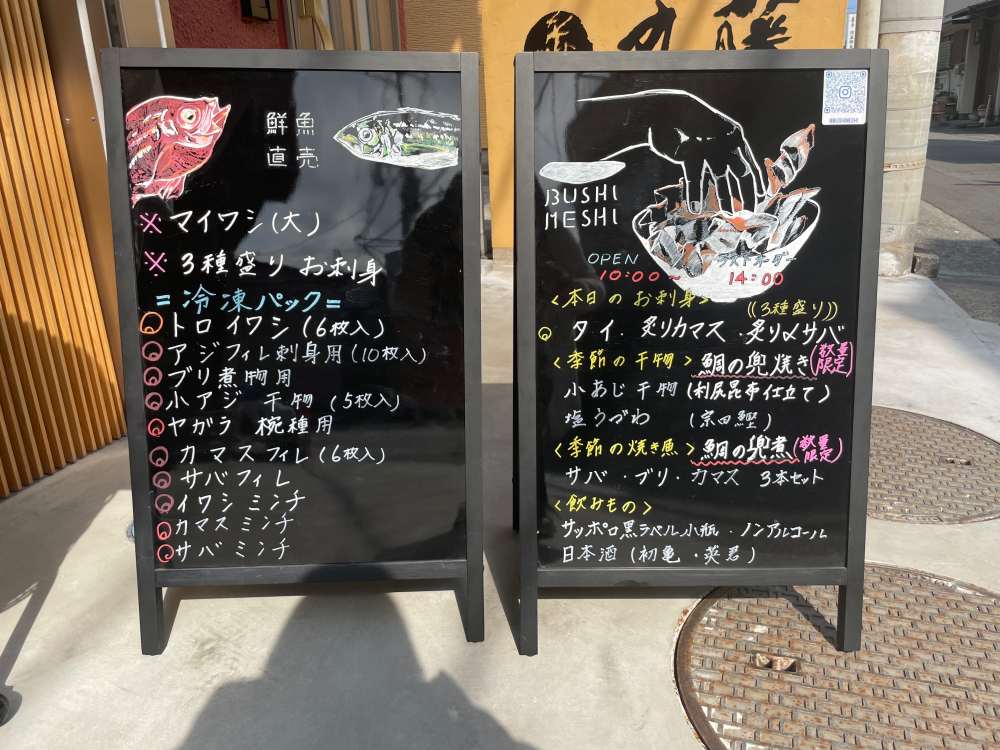 鮮魚
直売
※ マイワシ(大)
※ 3種盛り お刺身
=冷凍パック=
トロイワシ(6枚入)
アジフィレ刺身用(10枚入)
ブリ煮物用
小アジ 干物(5枚入)
ヤガラ 椀種用
カマスフィレ(6枚入)
サバフィレ
イワシミンチ
カマスミンチ
サバミンチ
BUSHI
MESHI
OPEN ラストオーダー
10:00~ 14:00
<本日のお刺身>((3種盛り))
タイ・炙りカマス・炙り〆サバ
<季節の干物>鯛の兜焼き(数量限定)
小あじ干物(利尻昆布仕立て)
塩うづわ (宗田鰹)
<季節の焼き魚>鯛の兜煮(数量限定)
サバ・ブリ・カマス 3本セット
<飲みもの>
サッポロ黒ラベル小瓶・ノンアルコール
日本酒(初亀・英君)